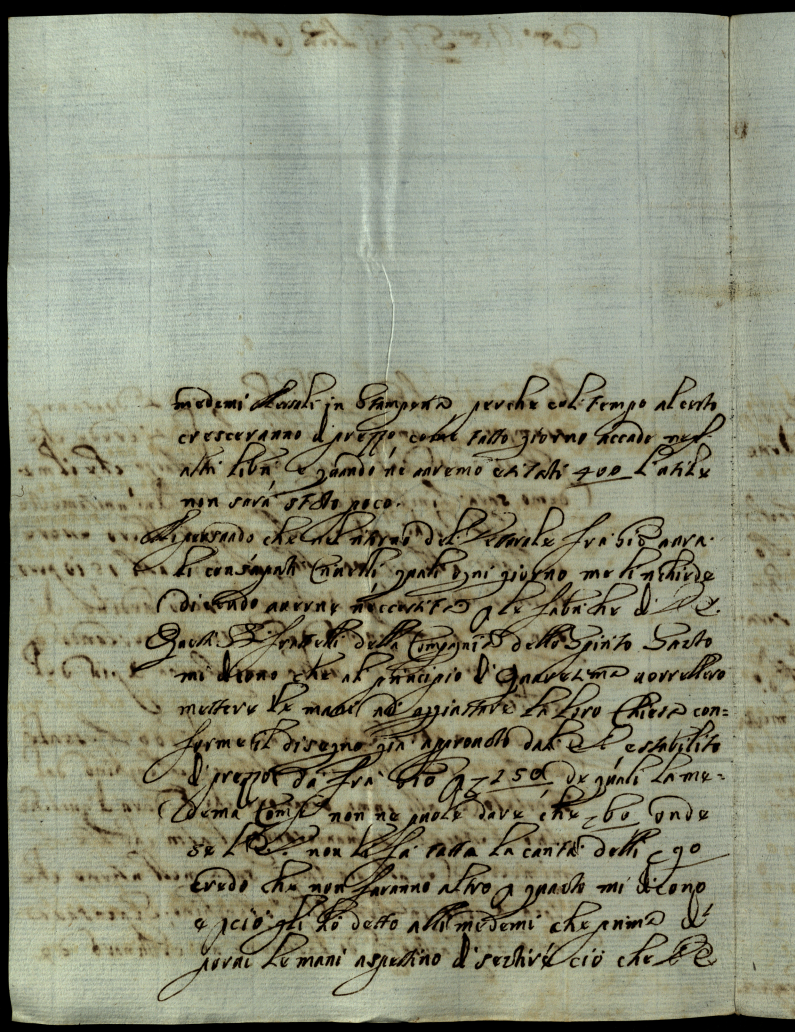 medemi in Stamparia perche col tempo al certo
cresceranno di prezzo come tutto giorno accade negl'
altri libri e quando ne avremo esitati 400
non sarà stato poco.
che nel ritorno del fra Bio avrà
quali ogni giorno me li richiede
dicendo averne neccessità p le fabriche di V.E.
Quelli SS.ri fratelli della Compagnia dello Spirito Santo
mi dicono che al principio di Quaresima vorrebbero
mettere le mani ad aggiustare la loro Chiesa con=
forme il disegno già approvato dall' E.V. e stabilito
di prezzo da fra Bio p 150 de quali la me=
dema Comp.a non ne puole dare che 60 onde
se l'E.V. non li fà tutta la carità delli 90
credo che non faranno altro p quanto mi dicono
e p ciò gli hò detto alli medemi che prima di
porvi le mani aspettino di sentire ciò che V.E.